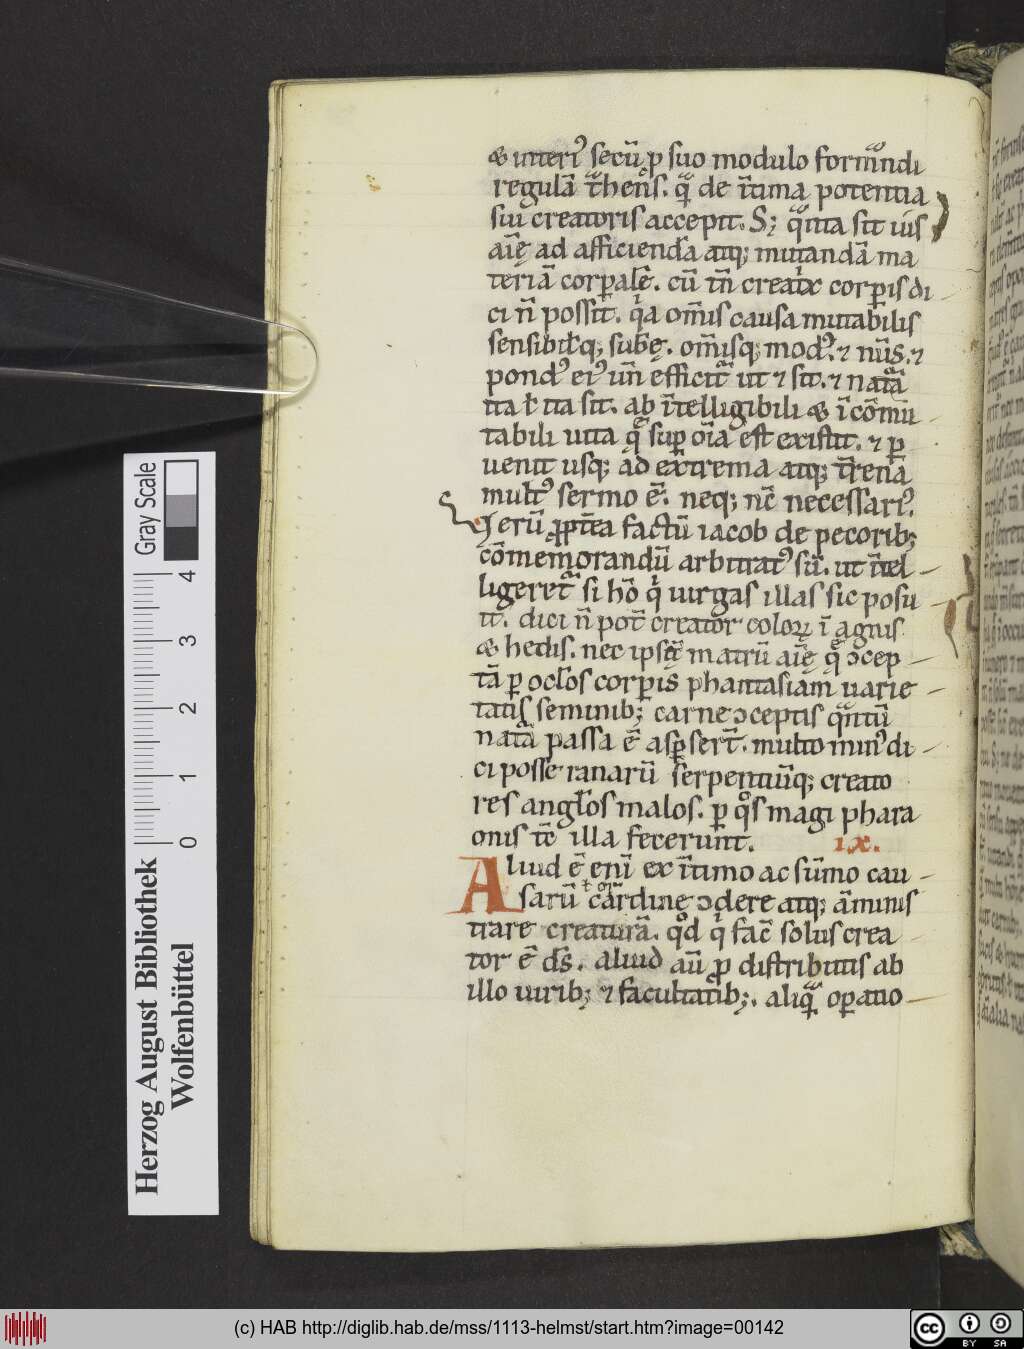 & interi᾿ secū p suo modulo formͣndi
regulā tͣhens. qͣ̄ de ītima potentia
sui creatoris accepit. S; qͣ̄uta sit uis
aīę ad afficiendā atq; mutandā ma
teriā corꝑalē. cū tn̄ creatͥx corꝑis di
ci n̄ possit. qͥa om̄is causa mutabilis
sensibilisq; sub̄ę. om̄isq; mod᾿. ⁊ nūs. ⁊
pond᾿ ei᾿ un̄ efficitͣ ut ⁊ sit. ⁊ natͣā
ita ł ita sit. ab ītelligibili & īcōmu
tabili uita qͣ̄ suꝑ oīa est existit. ⁊ ꝑ
uenit usq; ad extrema atq; t̄rena
mult᾿ sermo ē. neq; nc̄ necessari᾿.
Verū ꝓpt̄ea factū iacob de pecorib;
cōmemorandū arbitrat᾿ sū. ut ītel
ligeretͣ si hō qͥ uirgas illas sic posu
it. dici n̄ pot̄ creator coloꝝ ī agnis
& hedis. nec ipsę̄ matrū aīę qͣ̄ ↄcep
tā ꝑ oclōs corꝑis phantasiam uarie
tatis seminib; carne ↄceptis qͣntū
natͣā passa ē asꝑser̄t. multo min᾿ di
ci posse ranarū serpentiūq; creato
res anglōs malos. ꝑ qͦs magi phara
onis tc̄ illa fecerunt. ix.
Aliud ē enī ex ītimo ac sūmo cau
sarū cardine ↄdere atq; āminis
trare creaturā. qͦd qͥ fac̄ solus crea
tor ē ds̄. aliud aū ꝓ distributis ab
illo uirib; ⁊ facultatib;. aliqͣ̄ oꝑatio
Gray Scale
0 1 2 3 4
Herzog August Bibliothek
Wolfenbüttel
(c) HAB http://diglib.hab.de/mss/1113-helmst/start.htm?image=00142
cc BY SA